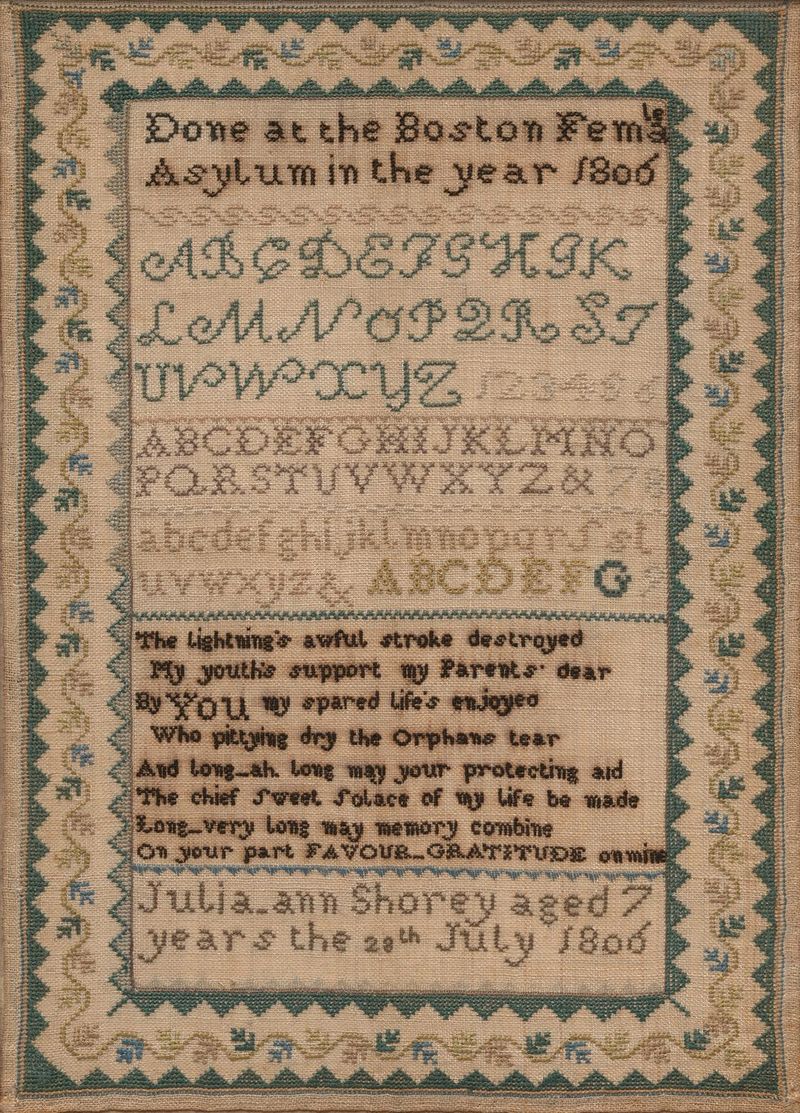 Done at the Boston Female
Asylum in the year 1806
ABCDEFGHIK
LMNOPQRST
UVWXYZ 123456
ABCDEFGHIJKLMNO
PQRSTUVWXYZ& 78
abcdefghijklmnopqrſst
uvwxyz& ABCDEFG
The lightning's awful stroke destroyed
My youth's support my Parents dear
By YOU my spared life's enjoyed
Who pittying dry the Orphans tear
And long_ah long may your protecting aid
The chief ſweet ſolace of my life be made
Long_very long may memory combine
On your part FAVOUR_GRATITUDE on mine
Julia_ann Shorey aged 7
years the 28th July 1806